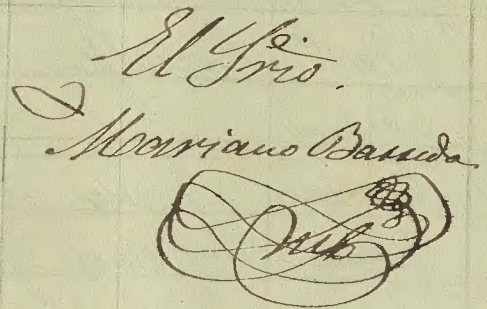 El Srio.
Mariano Barreda